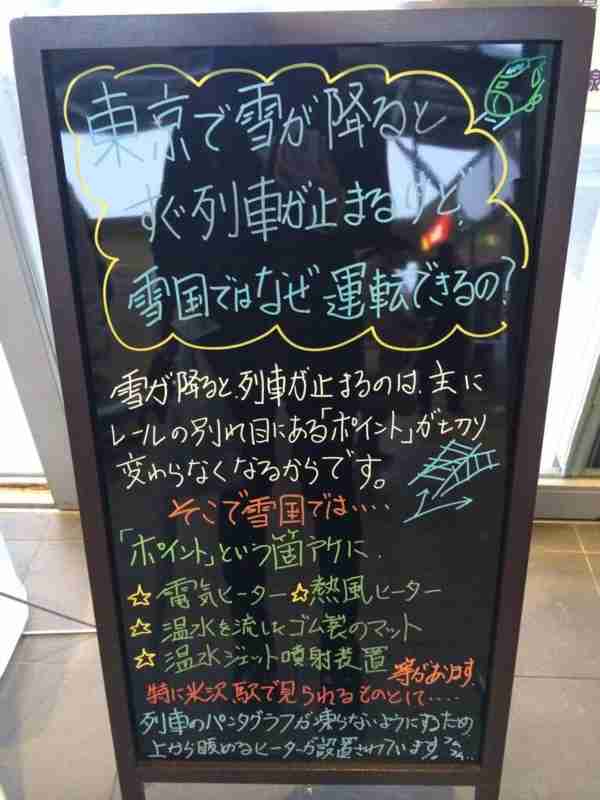 東京で雪が降ると
すぐ列車が止まるけど、
雪国ではなぜ運転できるの?
雪が降ると、列車が止まるのは、主に
レールの別れ目にある「ポイント」が切り
変わらなくなるからです。
そこで雪国では・・・・
「ポイント」という箇所に、
☆ 電気ヒーター ☆ 熱風ヒーター
☆ 温水を流したゴム製のマット
☆ 温水ジェット噴射装置 等があります。
特に米沢駅で見られるものとして・・・・
列車のパンタグラフが凍らないようにするため
上から暖めるヒーターが設置されています!